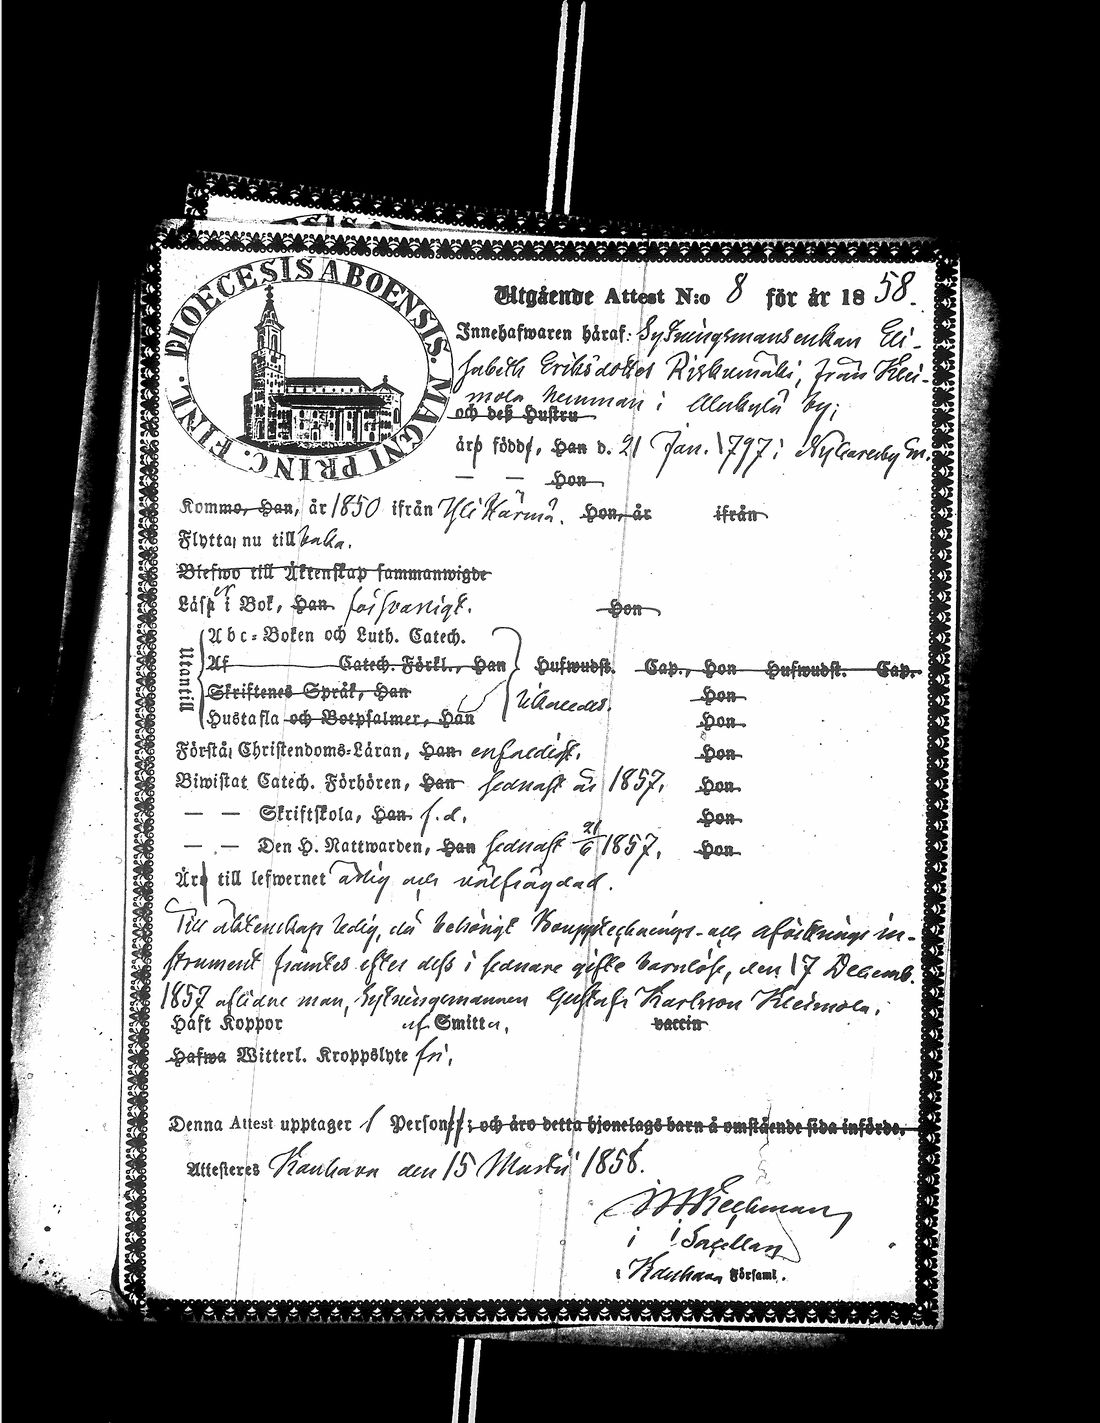 DIOECESIS ABOENSIS. MAGNI PRINC. FINL.
Utgående Attest N:o 8 för år 1858.
Innehafwaren häraf: Sytningsmansenkan Eli-
sabeth Eriksdotter Riskumäki, från Klei-
mola hemman i Alakylä by;
och deß Hustru
äro född, Han d. 21 Jan. 1797 i Nykarleby
— — Hon
Kommo, Han, år 1850 ifrån Yli Härmä. Hon, år ifrån
Flytta nu till baka.
Blefwo till Äktenskap sammanwigde
Läser i Bok, Han försvarligt. Hon
Utantill
Abc-Boken och Luth. Catech.
Af Catech. Förkl., Han Hufwudst. Cap., Hon Hufwudst. Cap.
Skriftenes Språk, Han Hon
Hustafla och Botpsalmer, Han Hon
Förstå Christendoms-Läran, Han enfaldigt. Hon
Biwistat Catech. Förhören, Han sednast år 1857. Hon
— — Skriftskola, Han f.d. Hon
— — Den H. Nattwarden, Han sednast 21/6 1857. Hon
Äro till lefwernet ärlig och välfrägdad.
Till äktenskap ledig, då behörigt Boupptecknings- och afvittrings in-
strument framtes efter dess i sednare gifte barnlöse, den 17 Decemb.
1857 aflidne man, Sytningsmannen Gustaf Karlsson Kleimola.
Haft Koppor af Smitta, vaccin
Hafwa Witterl. Kroppslyte fri.
Denna Attest upptager 1 Person; och äro detta hjonelags barn å omstående sida införde.
Attesteres Kauhava den 15 Martii 1858.
Sacellan
i Kauhava Församl.